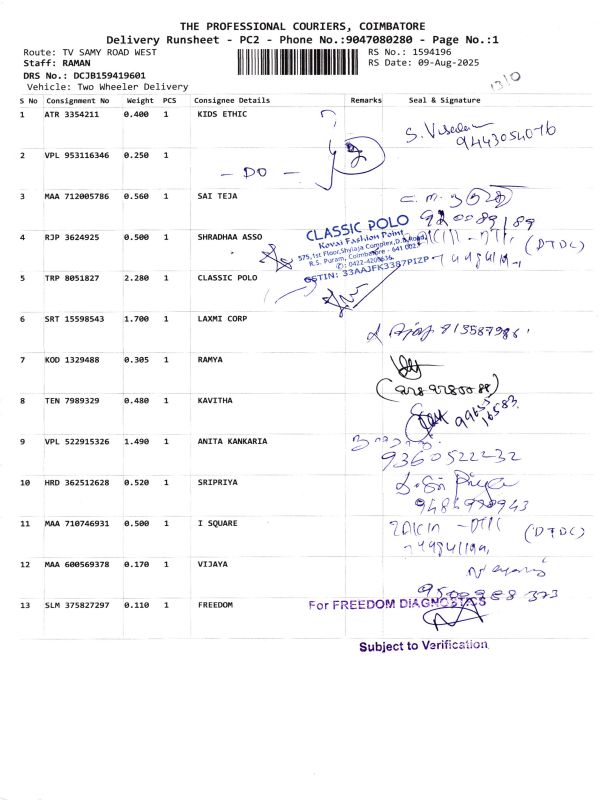 THE PROFESSIONAL COURIERS, COIMBATORE
Delivery Runsheet - PC2 - Phone No.:9047080280 - Page No.:1
Route: TV SAMY ROAD WEST
RS No.: 1594196
Staff: RAMAN
RS Date: 09-Aug-2025
DRS No.: DCJB159419601
Vehicle: Two Wheeler Delivery
1310
S No Consignment No Weight PCS Consignee Details Remarks Seal & Signature
1 ATR 3354211 0.400 1 KIDS ETHIC
9443054076
2 VPL 953116346 0.250 1
- DO -
3 MAA 712005786 0.560 1 SAI TEJA
4 RJP 3624925 0.500 1 SHRADHAA ASSO
(DTDC)
CLASSIC POLO
Kovai Fashion Point
575,1st Floor,Shylaja Complex,D.B.Road,
R.S. Puram, Coimbatore - 641 002.
GSTIN: 33AAJFK3387P1ZP
5 TRP 8051827 2.280 1 CLASSIC POLO
6 SRT 15598543 1.700 1 LAXMI CORP
7 KOD 1329488 0.305 1 RAMYA
8 TEN 7989329 0.480 1 KAVITHA
9 VPL 522915326 1.490 1 ANITA KANKARIA
9360522232
10 HRD 362512628 0.520 1 SRIPRIYA
11 MAA 710746931 0.500 1 I SQUARE
(DTDC)
12 MAA 600569378 0.170 1 VIJAYA
13 SLM 375827297 0.110 1 FREEDOM
For FREEDOM DIAGNOSTICS
Subject to Verification